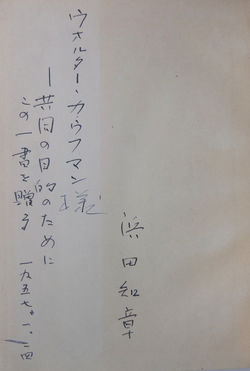 ウオルター・カウフマン様
―共同の目的のために
この一書を贈る
一九五七・一・二四
浜田知章